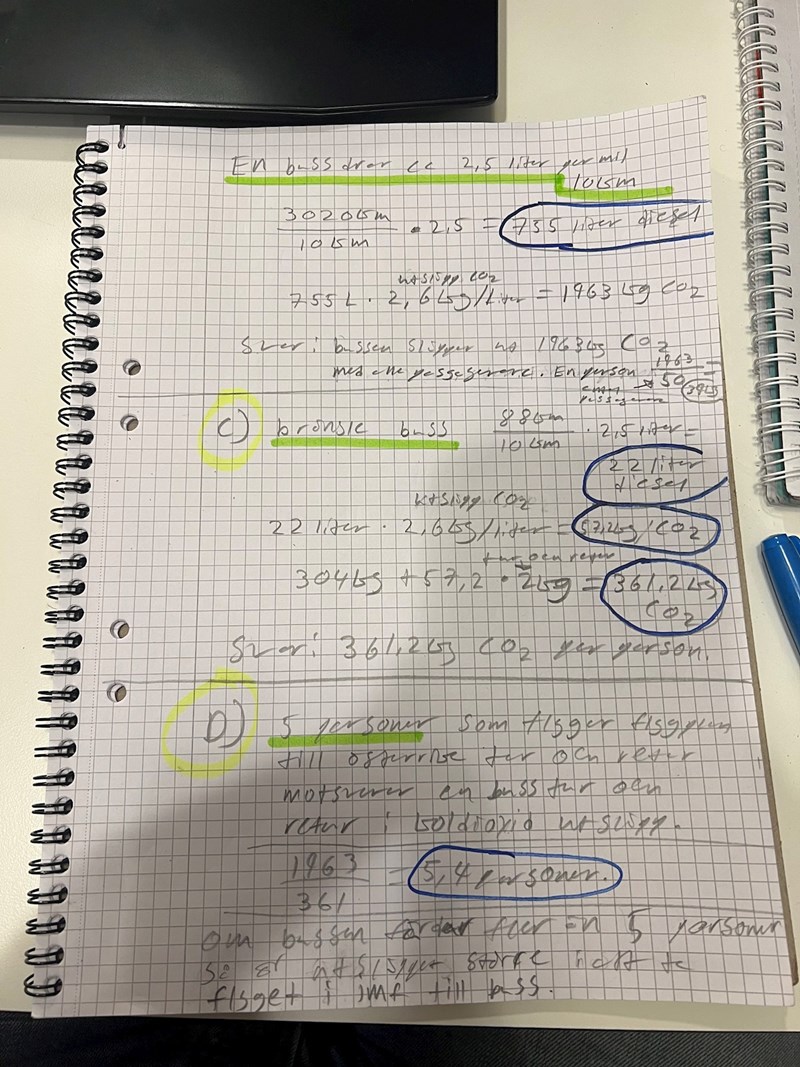 En buss drar ca 2,5 liter per mil
10km
3020km
10km
• 2,5 = 755 liter diesel
utsläpp CO2
755 L • 2,6kg/liter = 1963 kg CO2
Svar: bussen släpper ut 1963kg CO2
med alla passagerare. En person 1963 =
50 39kg
passagerare
C) bränsle buss 88km
10km
• 2,5 liter =
22 liter
diesel
utsläpp CO2
22 liter • 2,6kg/liter = 57,2kg/CO2
tur och retur
304kg + 57,2 • 2kg = 361,2kg
CO2
Svar: 361,2kg CO2 per person.
D) 5 personer som flyger flygplan
till österrike tur och retur
motsvarar en buss tur och
retur i koldioxid utsläpp.
1963
361
= 5,4 personer.
Om bussen fördar fler än 5 personer
så är utsläppet större
flyget i jmf till buss.